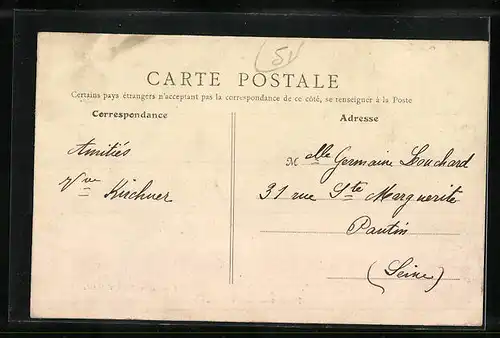 51
CARTE POSTALE
Certains pays étrangers n'acceptant pas la correspondance de ce côté, se renseigner à la Poste
Correspondance
Adresse
Amitiés
Vve Kirchner
Melle Germaine Louchard
31 rue Ste Marguerite
Pantin
(Seine)